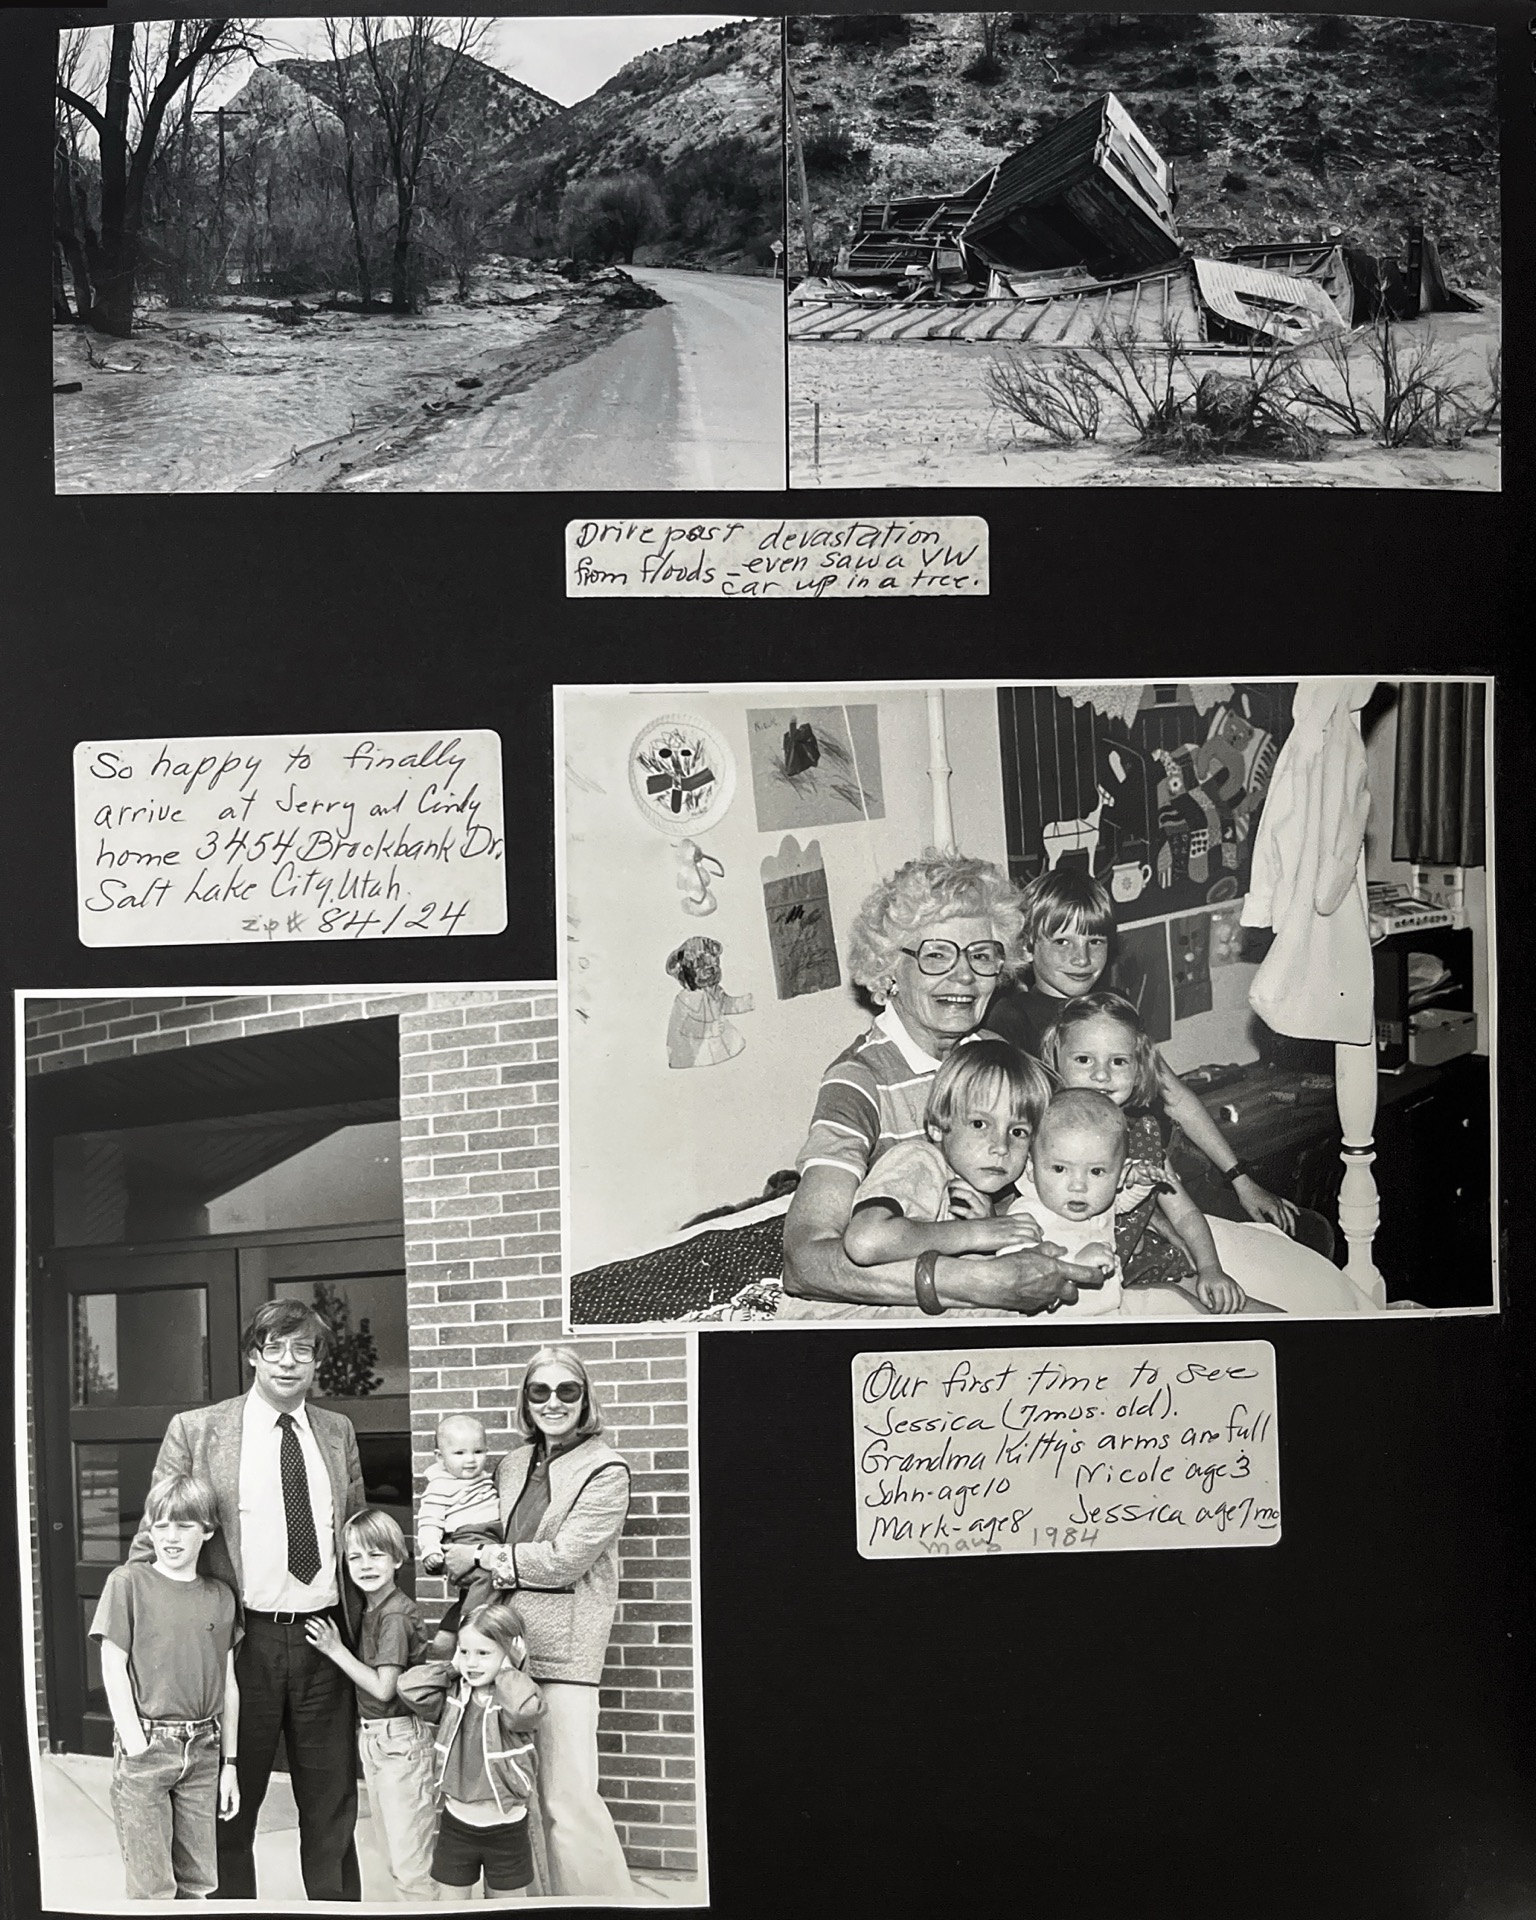 Drive past devastation
from floods - even saw a VW
car up in a tree.
So happy to finally
arrive at Jerry and Cindy
home 3454 Brockbank Dr.
Salt Lake City, Utah.
zip# 84124
Our first time to see
Jessica (7 mos. old).
Grandma Kitty's arms are full
John-age 10 Nicole age 3
Mark-age 8 Jessica age 7 mo
May 1984